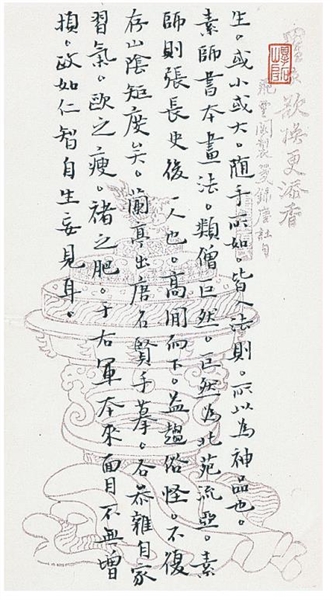 更添香
生。或小或大。随手所如。皆入法則。所以為神品也。
素師書本畫法。類僧巨然。巨然為北苑流亞。素
師則張長史後一人也。高閒而下。益趨俗怪。不復
存山陰矩度矣。蘭亭出唐名賢手摹。各參雜自家
習氣。歐之瘦。褚之肥。于右軍本來面目不無增
損。政如仁智自生妄見耳。